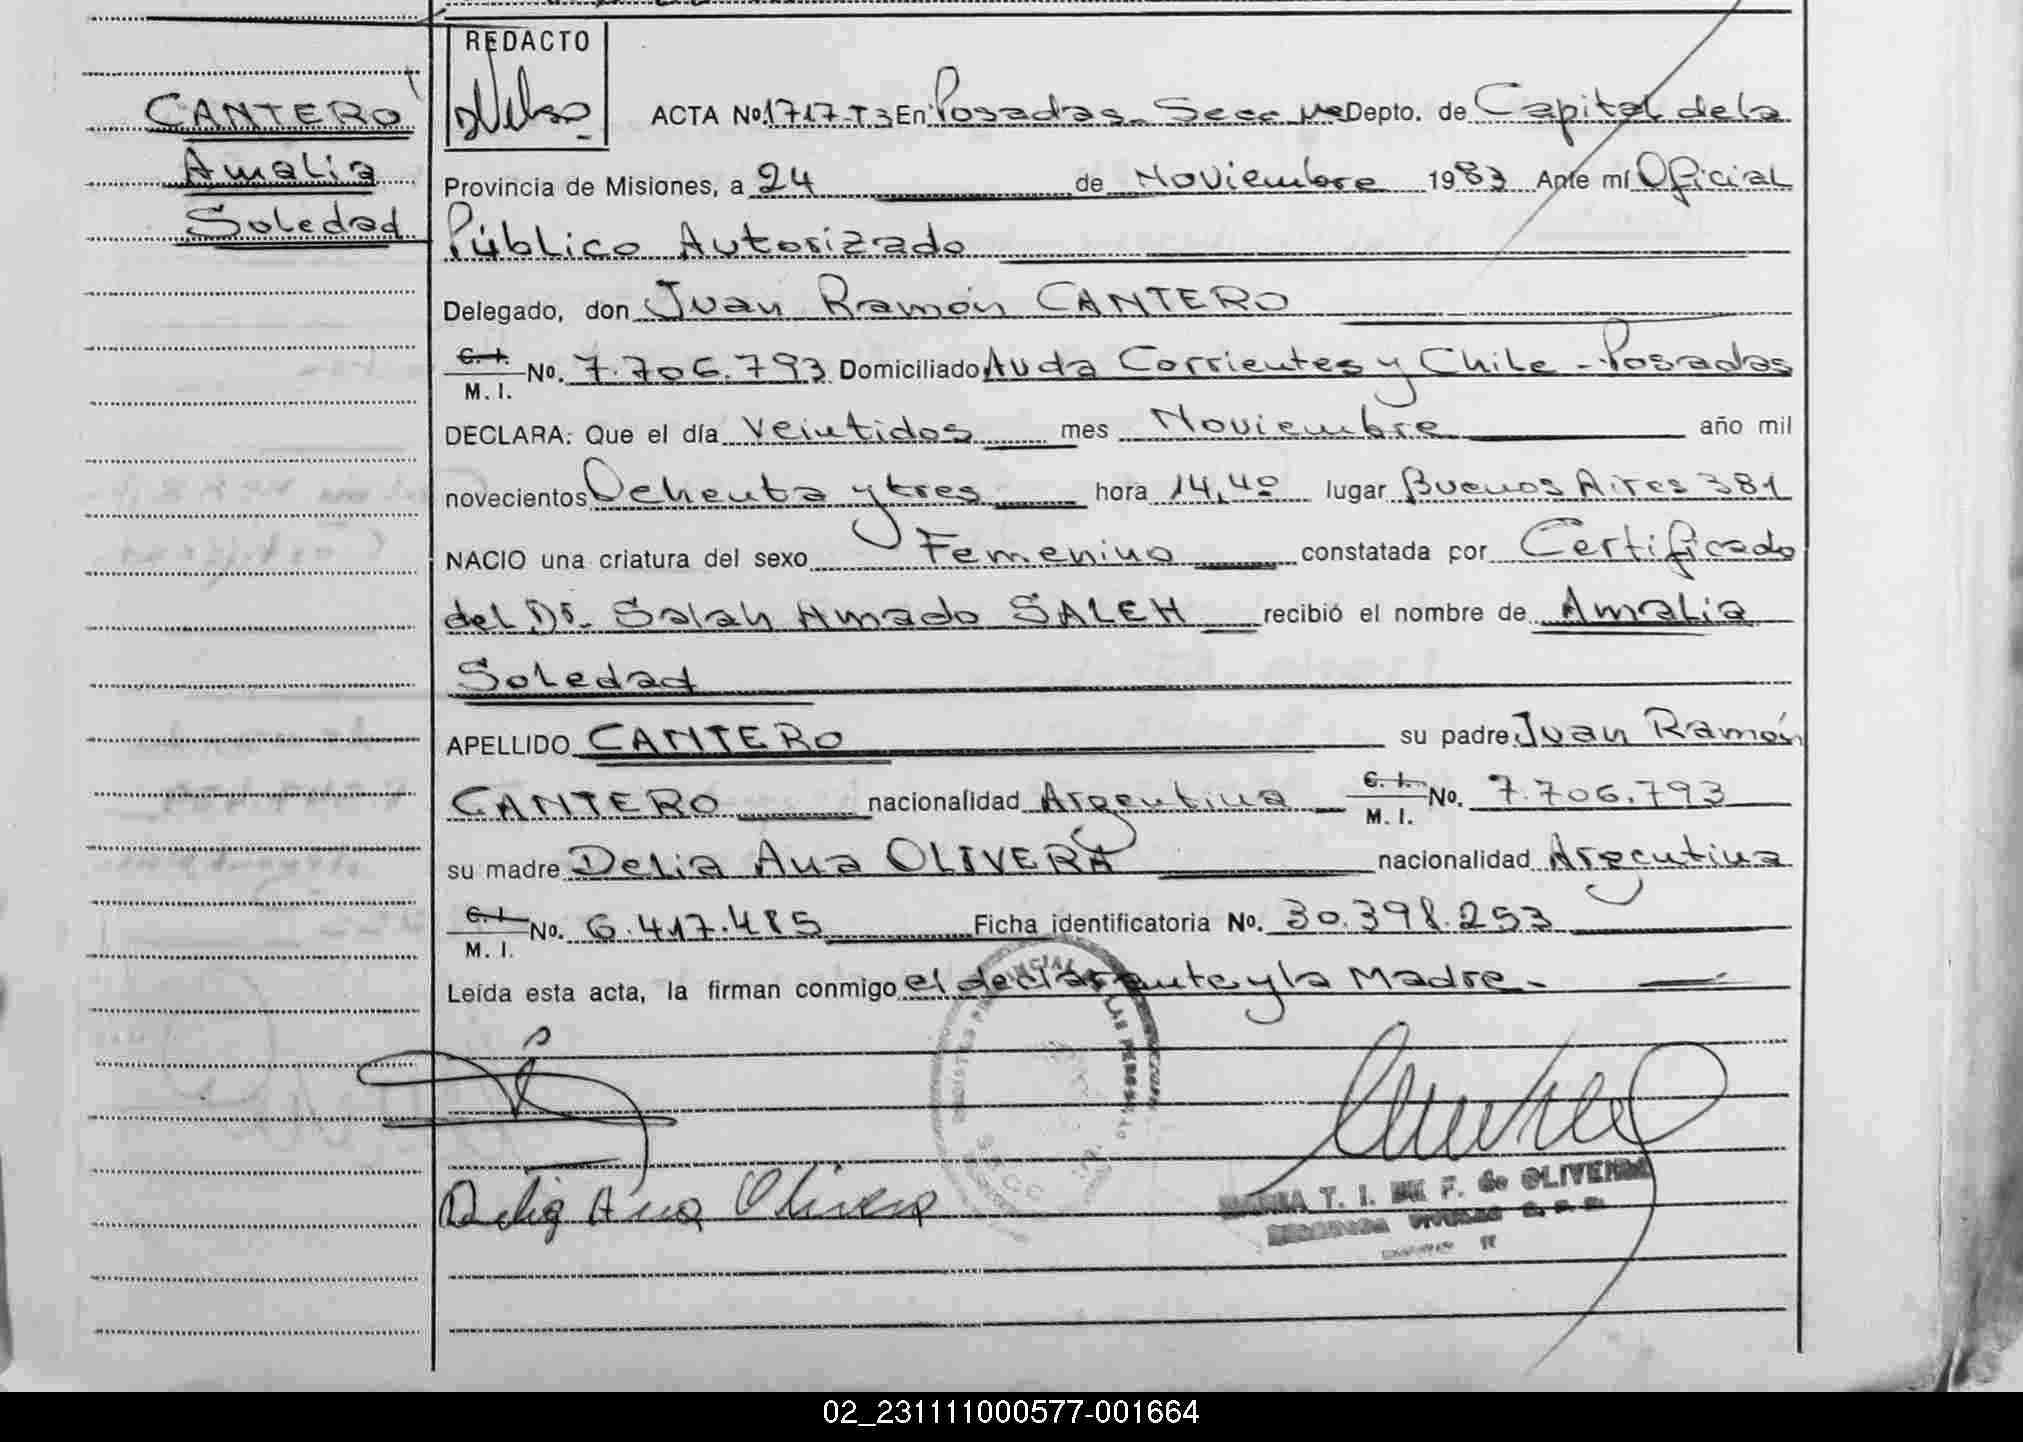 REDACTO
CANTERO
Amalia
Soledad
ACTA No. 1717-T3 En Posadas - Secc Depto. de Capital de la
Provincia de Misiones, a 24 de Noviembre 1983 Ante mí Oficial
Público Autorizado
Delegado, don Juan Ramón CANTERO
C. I.
M. I. No. 7.706.793 Domiciliado Avda Corrientes y Chile - Posadas
DECLARA: Que el día Veintidos mes Noviembre año mil
novecientos Ochenta y tres hora 14,40 lugar Buenos Aires 381
NACIO una criatura del sexo Femenino constatada por Certificado
del Dr. Salah Amado SALEH recibió el nombre de Amalia
Soledad
APELLIDO CANTERO su padre Juan Ramón
CANTERO nacionalidad Argentina C. I. M. I. No. 7.706.793
su madre Delia Ana OLIVERA nacionalidad Argentina
C. I. M. I. No. 6.417.485 Ficha identificatoria No. 30.398.253
Leída esta acta, la firman conmigo el declarante y la Madre.-
Delia Ana Olivera
T. I. F. de
02_231111000577-001664